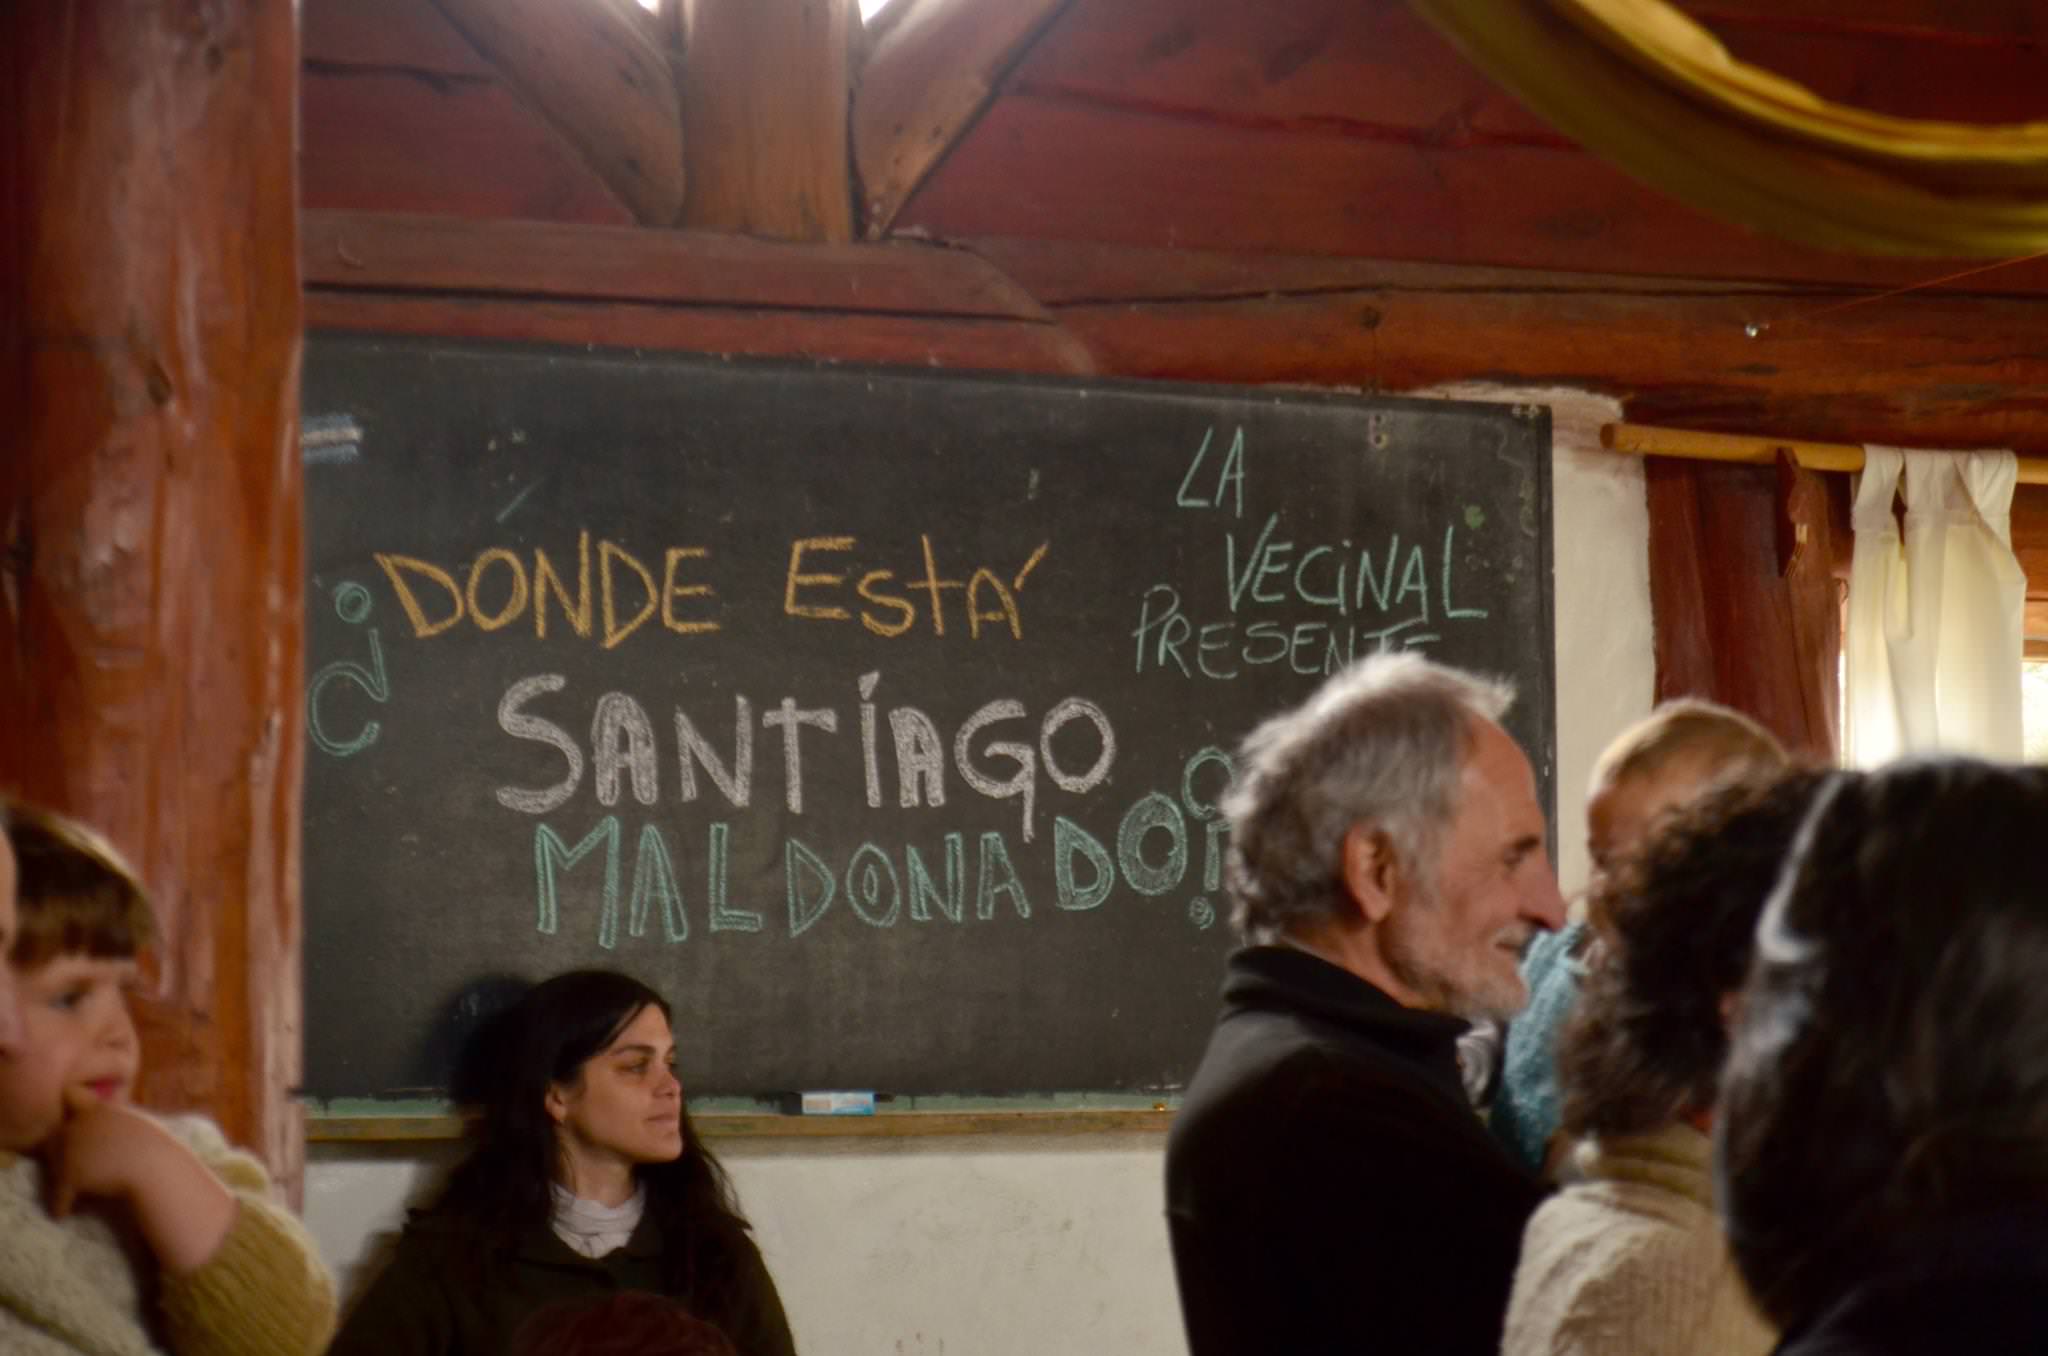 ¿DONDE EstÁ
SANTÍAGO
MALDONADO?
LA
VECiNAL
PRESENTE